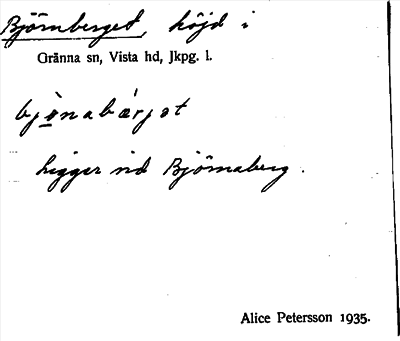 Björnberget, höjd i
Gränna sn, Vista hd, Jkpg. l.
bjö̀nabǽrjət
ligger vid Björnaberg.
Alice Petersson 1935.